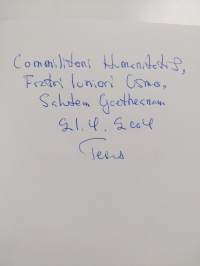 Commilitoni Humanitatis,
Fratri Iuniori Osmo,
Salutem Goetheanam
21.4.2004